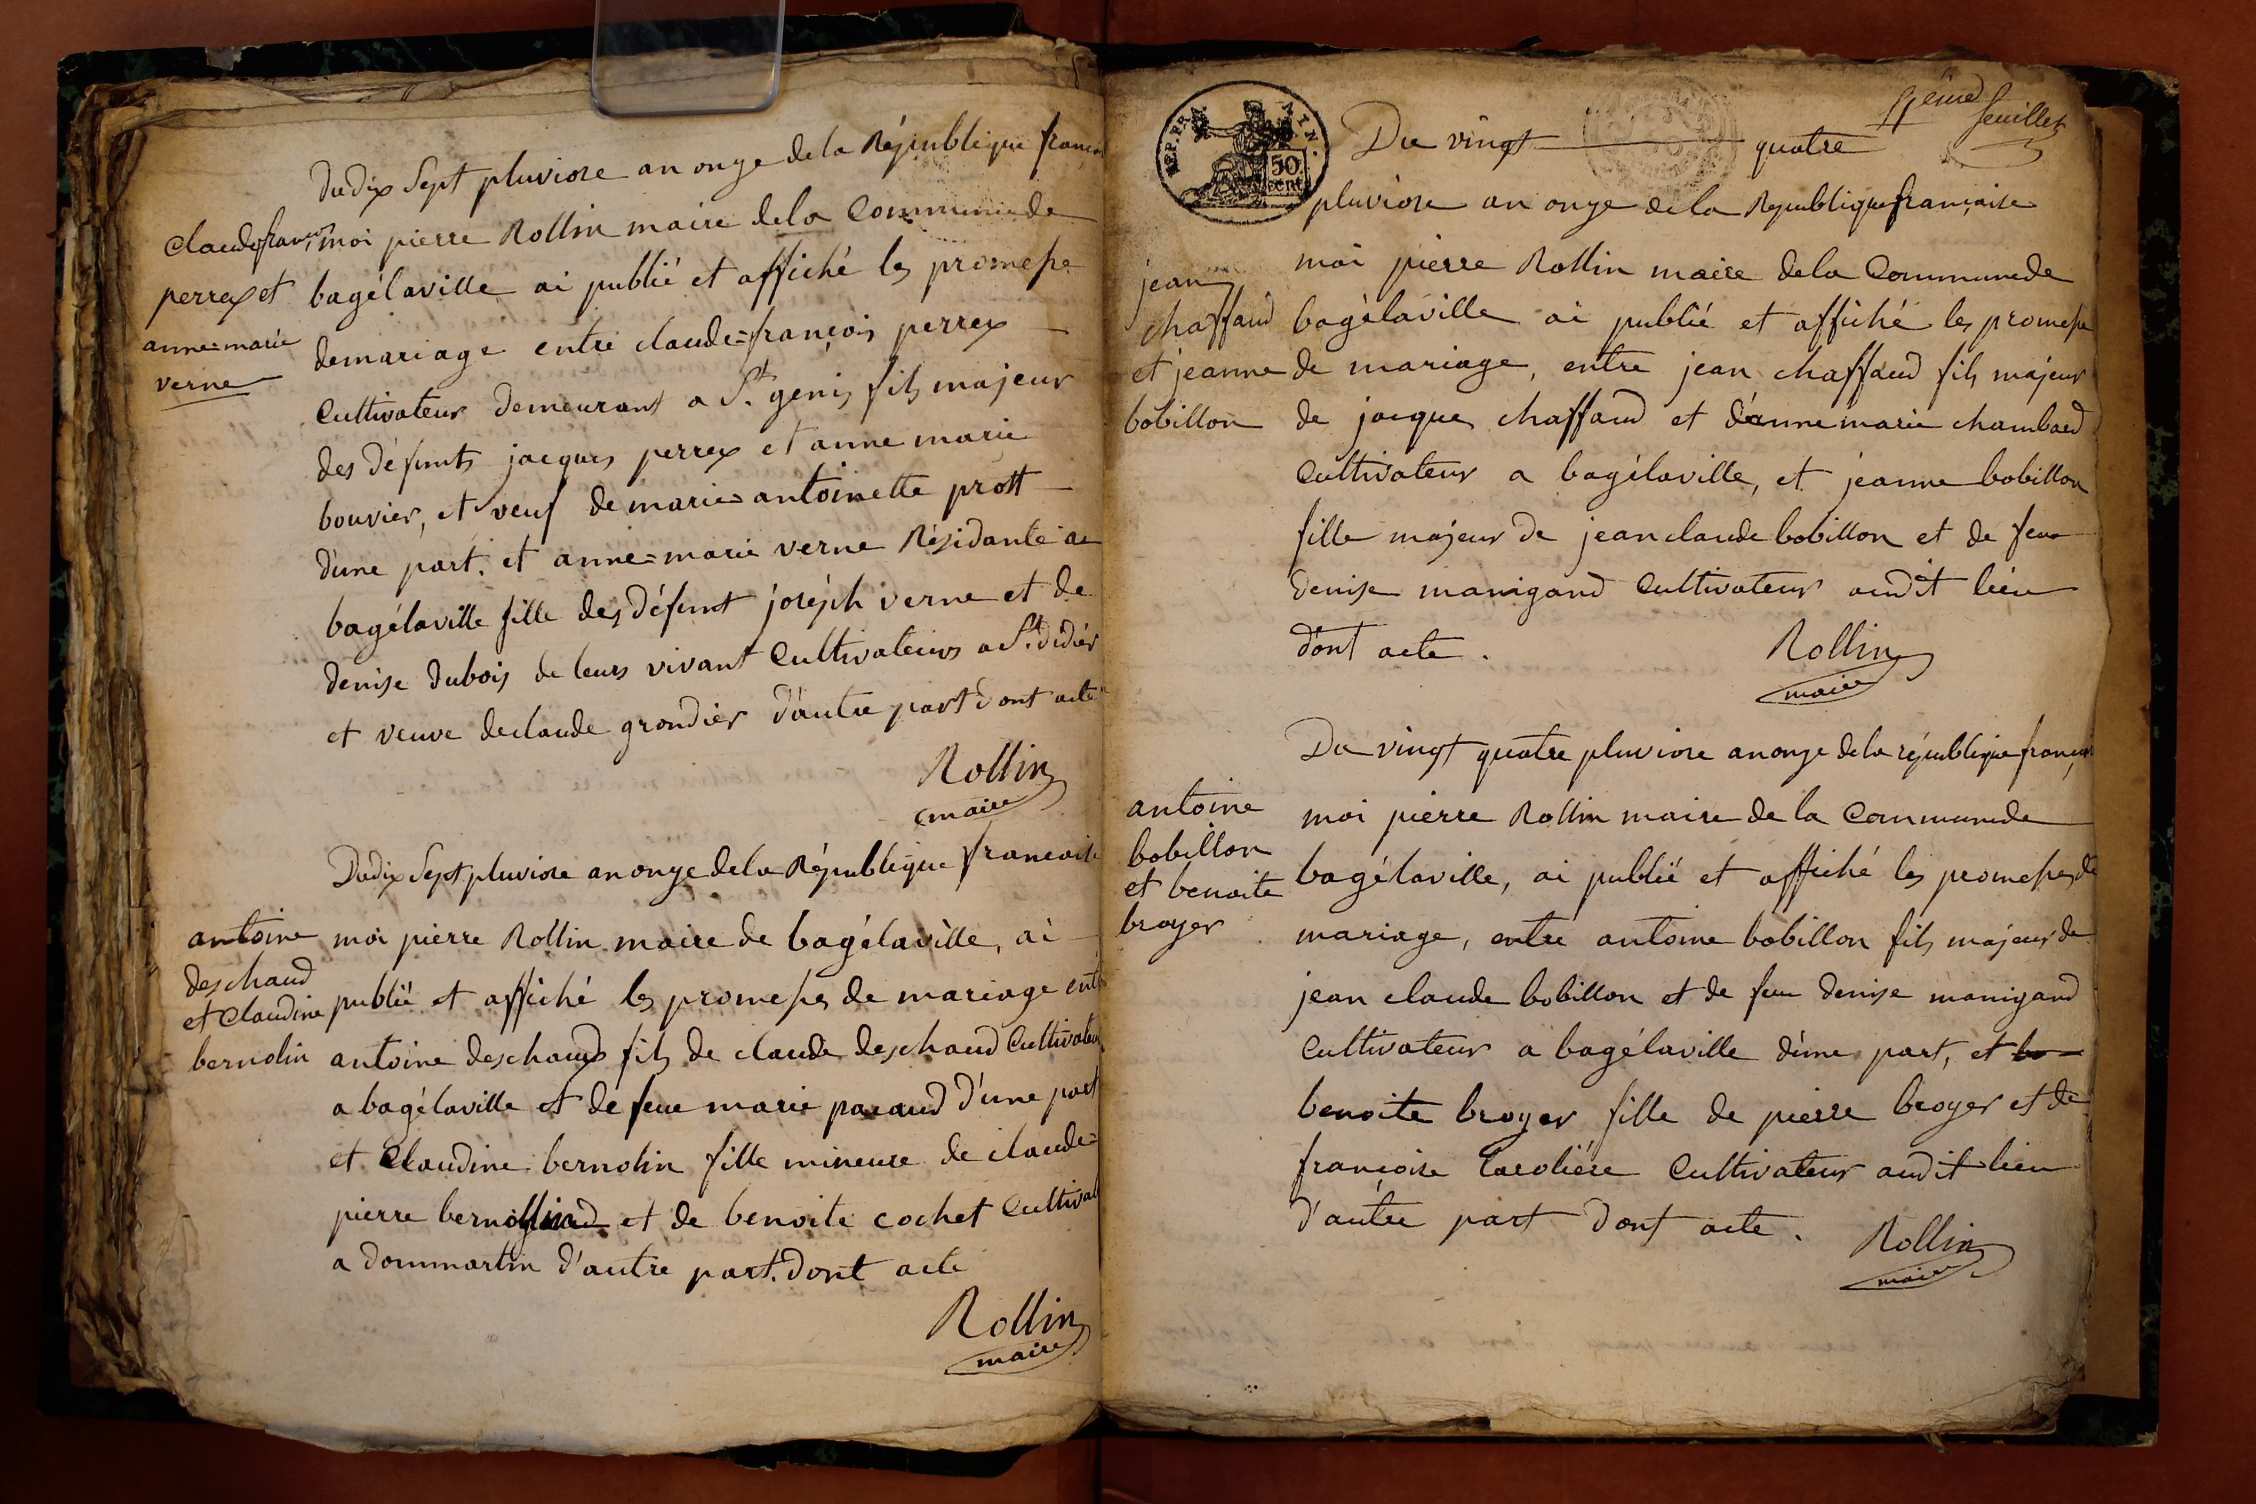 Dudix Sept pluviose an onze dela République françai
claudefrancs
perrex et
anne=marie
verne
moi pierre Rollin maire dela Commune de
bagélaville ai publié et affiché les promesse
demariage entre claude=françois perrex
Cultivateur demeurant a St. genis fils majeur
des défunts jacques perrex et anne marie
bouvier, et veuf de marie=antoinette prost
d'une part. et anne=marie verne Résidante a
bagélaville fille des défunt joséph verne et de
denise dubois de leurs vivant Cultivateurs a St. didier
et veuve declaude grondier d'autre part dont acte
Rollin
maire
Dudix Sept pluviose an onze dela République francaise
antoine
deschaud
et Claudine
bernolin
moi pierre Rollin maire de bagélaville, ai
publié et affiché les promesses de mariage entre
antoine deschaud fils de claude deschaud Cultivateur
a bagélaville et de feue marie pacaud d'une part
et Claudine bernolin fille mineure de claude=
pierre bernollin et de benoite cochet Cultivat
a dommartin d'autre part. dont acte
Rollin
maire
REP. FRA
50
cent
feuillet
Du vingt quatre
pluviose an onze dela Republique française
jean
chaffaud
et jeanne
bobillon
moi pierre Rollin maire dela Commune de
bagélaville ai publié et affiché les promesse
de mariage, entre jean chaffaud fils majeur
de jacques chaffaud et d'anne marie chambard
Cultivateur a bagélaville, et jeanne bobillon
fille majeur de jean claude bobillon et de feue
denise manigand Cultivateur audit lieu
dont acte.
Rollin
maire
Du vingt quatre pluviose an onze dela république françai
antoine
bobillon
et benoite
broyer
moi pierre Rollin maire de la Commune de
bagélaville, ai publié et affiché les promesses de
mariage, entre antoine bobillon fils majeur de
jean claude bobillon et de feue denise manigand
Cultivateur a bagélaville d'une part, et
benoite broyer fille de pierre broyer et de
françoise Carolière Cultivateur audit lieu
d'autre part dont acte.
Rollin
maire